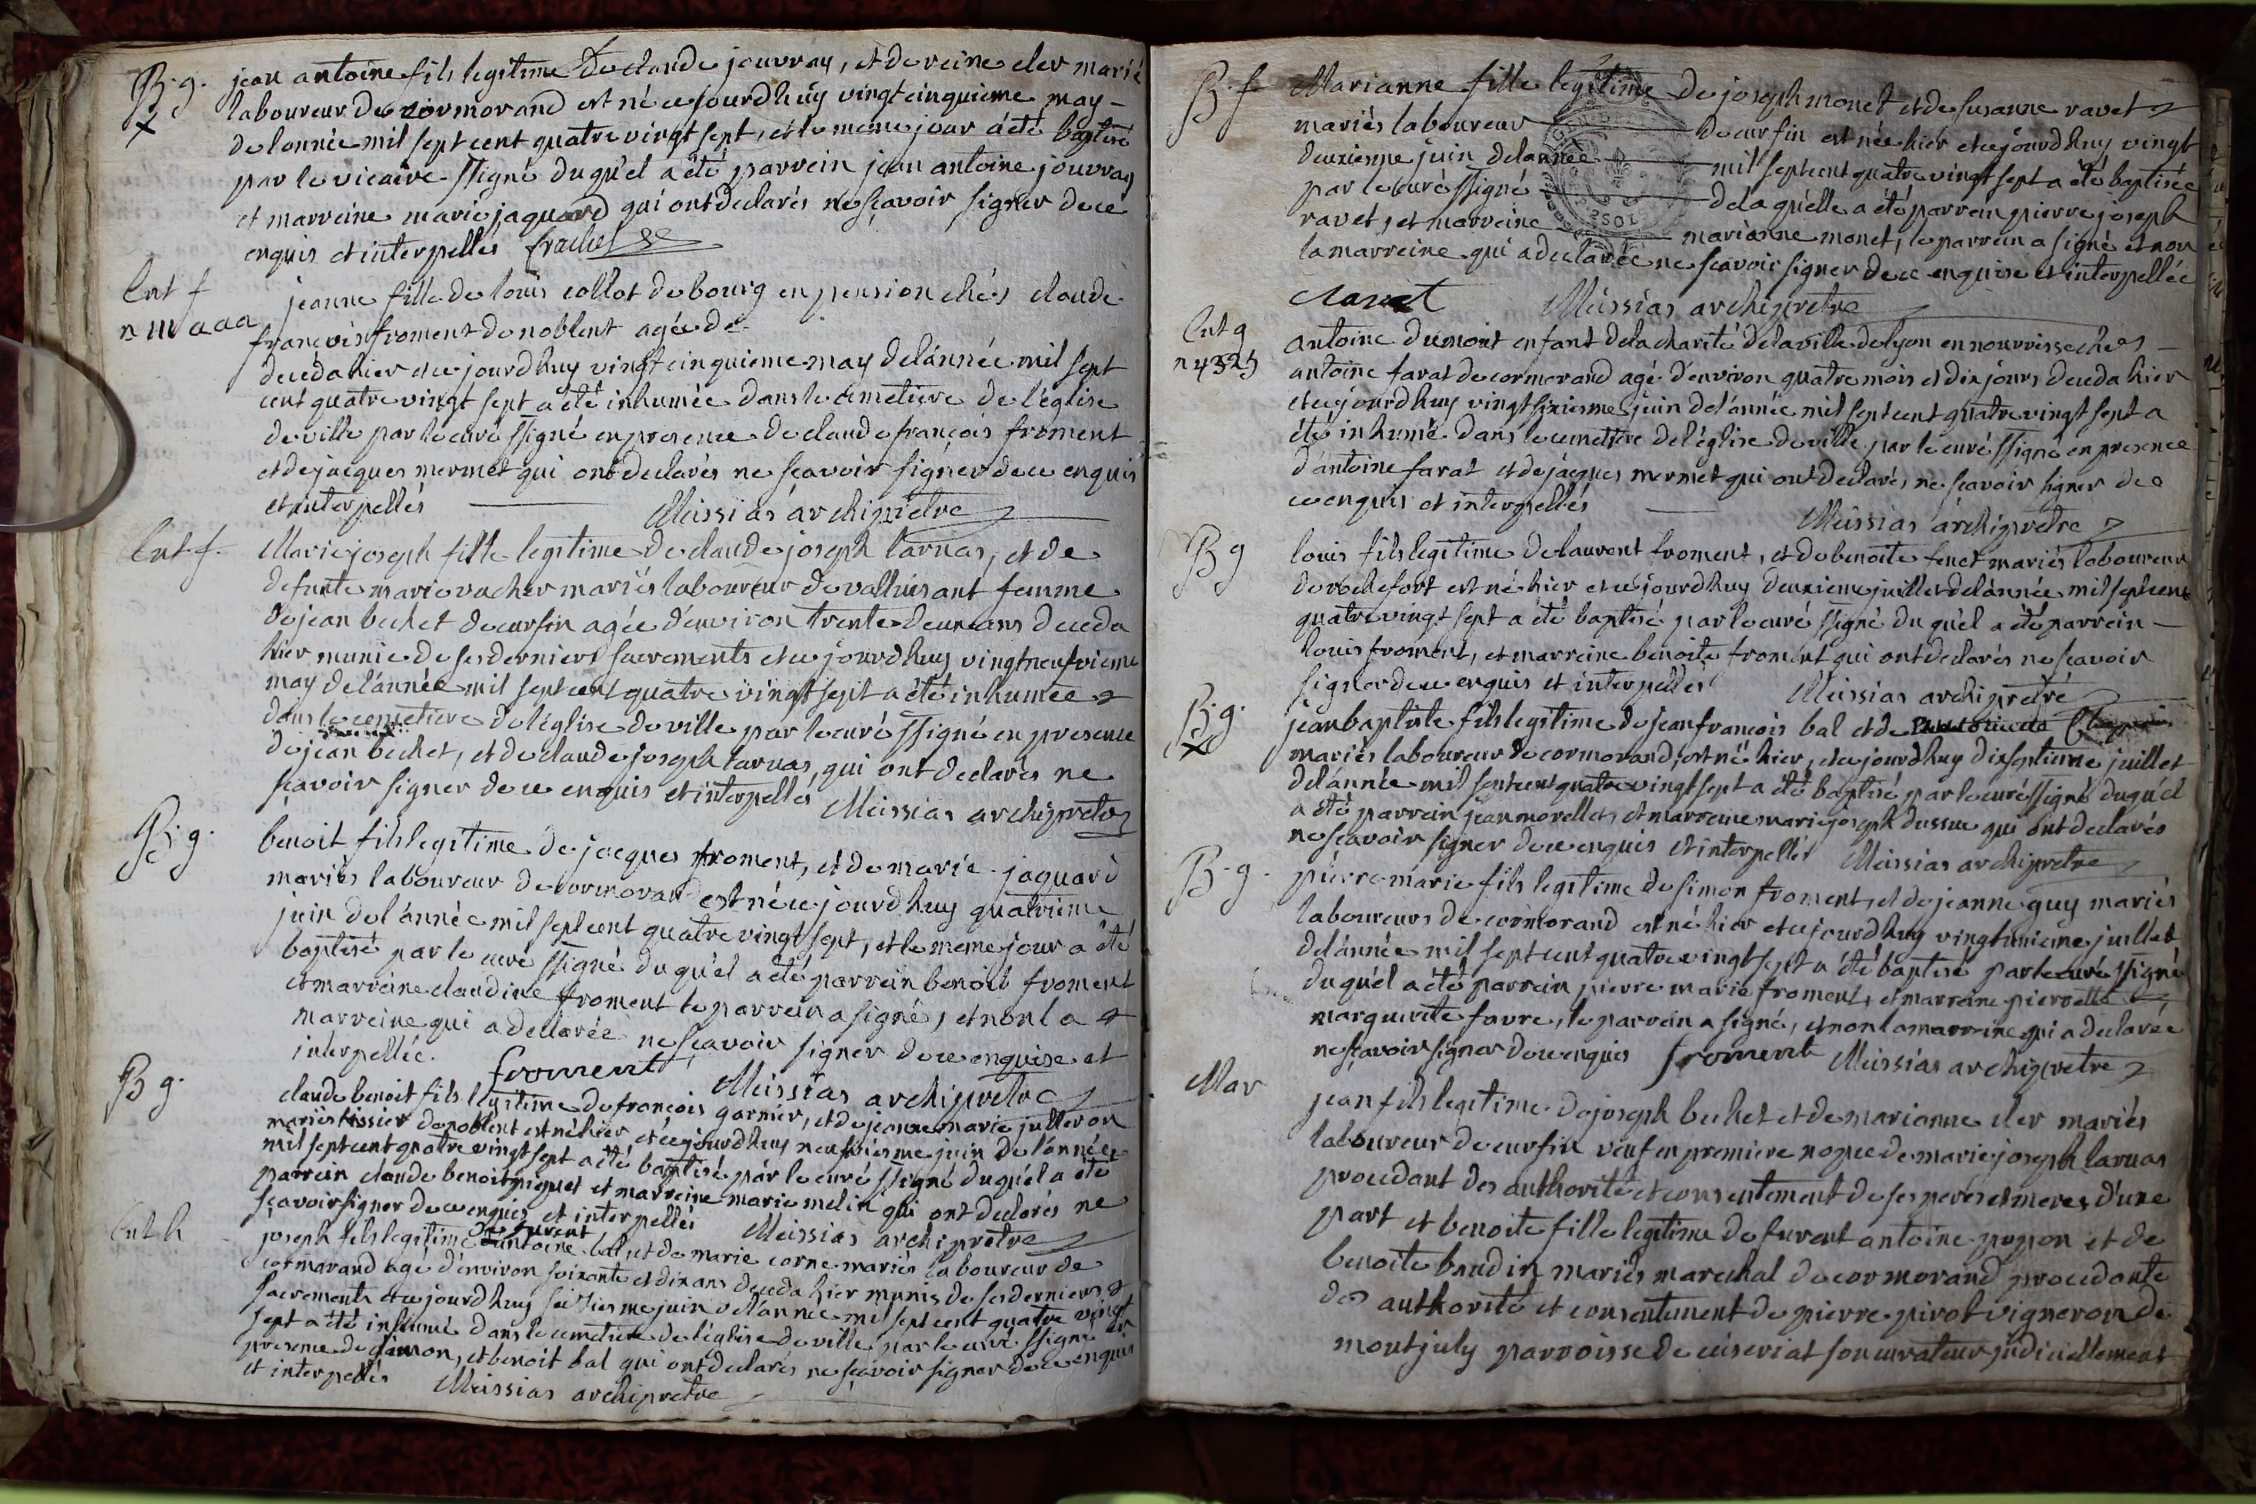 B. g.
x
jean antoine fils legitime de claude jouvray, et de reine cler mariés
laboureur de cormorand est né cejourdhuy vingt cinquieme may -
de lannée mil sept cent quatre vingt sept, et le meme jour a été baptisé
par le vicaire ssigné duquel a été parrein jean antoine jouvray
et marreine marie jaquard qui ont declarés ne sçavoir signer de ce
enquis et interpellés frachet
Ent f
jeanne fille de louis collot de bourg en pension chés claude
françois froment de noblent agée de
decéda hier et ce jourdhuy vingt cinquieme may de lánnée mil sept
cent quatre vingt sept a été inhumée dans le cemetiere de l'église
de ville par le curé ssigné en presence de claude françois froment
et de jacques mermet qui ont declarés ne sçavoir signer de ce enquis
et interpellés Meissias archipretre
Ent. f.
Marie joseph fille legitime de claude joseph larnas, et de
defunte marie vacher mariés laboureur de valluisant femme
de jean bechet de curfin agée d'environ trente deux ans deceda
hier munie de ses derniers sacrements et ce jourdhuy vingtneufvieme
may de lánnée mil sept cent quatre vingt sept a été inhumée
dans le cemetiere de l'église de ville par le curé ssigné en presence
de jean bechet, et de claude joseph larnas, qui ont declarés ne
sçavoir signer de ce enquis et interpellés Meissias archipretre
B. g.
benoit fils legitime de jacques froment, et de marie jaquard
mariés laboureur de cormorand est né ce jourdhuy quatrieme
juin de lánnée mil sept cent quatre vingt sept, et le meme jour a été
baptisé par le curé ssigné duquel a été parrein benoit froment
et marreine claudine froment le parrein a signé, et non la
marreine qui a declarée ne sçavoir signer de ce enquise et
interpellée. froment Meissias archipretre
B g.
claude benoit fils legitime de françois garnier, et de jeanne marie julleron
mariés tissier de noblent est né hier et ce jourdhuy neufviesme juin de lánnée
mil sept cent quatre vingt sept a été baptisé par le curé ssigné duquel a été
parrein claude benoit piquet et marreine marie melin qui ont declarés ne
sçavoir signer de ce enquis et interpellés Meissias archipretre
Ent h
joseph fils legitime de furent antoine bal, et de marie corne mariés laboureur de
cormorand agé d'environ soixante et dix ans deceda hier munis de ses derniers
sacrements et ce jourdhuy juin de lánnée mil sept cent quatre vingt
sept a été inhumé dans le cemetiere de l'église de ville par le curé ssigné en
presence de simon, et benoit bal qui ont declarés ne sçavoir signer de ce enquis
et interpellés Meissias archipretre
B. f
Marianne fille legitime de joseph monet et de susanne ravet
mariés laboureur de curfin est née hier et ce jourdhuy vingt
deuxieme juin de lannée mil sept cent quatre vingt sept a été baptisée
par le curé ssigné de laquelle a été parrein pierre joseph
ravet, et marreine marianne monet, le parrein a signé et non
la marreine qui a declarée ne sçavoir signer de ce enquise et interpellée
Meissias archipretre
Ent g
n 4325
antoine dumont enfant de la charité de la ville de lyon en nourrisse chés
antoine farat de cormorand agé d'environ quatre mois et dix jours deceda hier
et ce jourdhuy vingt sixiesme juin de lánnée mil sept cent quatre vingt sept a
été inhumé dans le cemetiere de l'église de ville par le curé ssigné en presence
d'antoine farat et de jacques mermet qui ont declarés ne sçavoir signer de
ce enquis et interpellés Meissias archipretre
B g
louis fils legitime de laurent froment, et de benoite fenet mariés laboureur
de rochefort est né hier et ce jourdhuy deuxieme juillet de lánnée mil sept cent
quatre vingt sept a été baptisé par le curé ssigné duquel a été parrein -
louis froment, et marreine benoite froment qui ont declarés ne sçavoir
signer de ce enquis et interpellés Meissias archipretre
B. g.
x
jean baptiste fils legitime de jean françois bal et de
mariés laboureur de cormorand, est né hier, et ce jourdhuy dixseptieme juillet
de lánnée mil sept cent quatre vingt sept a été baptisé par le curé ssigné duquel
a été parrein jean morellet, et marreine marie joseph dussue qui ont declarés
ne sçavoir signer de ce enquis et interpellés Meissias archipretre
B. g.
pierre marie fils legitime de simon froment, et de jeanne guy mariés
laboureurs de cormorand est né hier et ce jourdhuy vingt unieme juillet
de lánnée mil sept cent quatre vingt sept a été baptisé par le curé ssigné
duquel a été parrein pierre marie froment, et marreine pierrette
marguerite favre, le parrein a signé, et non la marreine qui a declarée
ne sçavoir signer de ce enquis froment Meissias archipretre
Mar
jean fils legitime de joseph bechet et de marianne cler mariés
laboureur de curfin veuf en premiere nopce de marie joseph larnas
procedant des authorité et consentement de ses peres et meres d'une
part et benoite fille legitime de furent antoine popon et de
benoite baudin mariés marechal de cormorand procedante
des authorité et consentement de pierre pirot vigneron de
montjuly parroisse de ceiseriat son curateur judiciellement